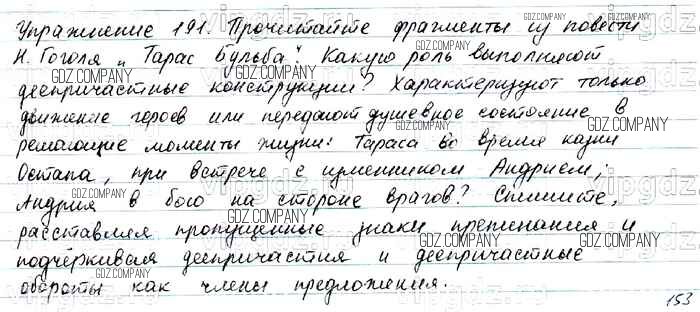 Упражнение 191. Прочитайте фрагменты из повести
Н. Гоголя „Тарас Бульба". Какую роль выполняют
деепричастные конструкции? Характеризуют только
движение героев или передают душевное состояние в
решающие моменты жизни: Тараса во время казни
Остапа, при встрече с изменником Андрием;
Андрия в бою на стороне врагов? Спишите,
расставляя пропущенные знаки препинания и
подчёркивая деепричастия и деепричастные
обороты как члены предложения.
153